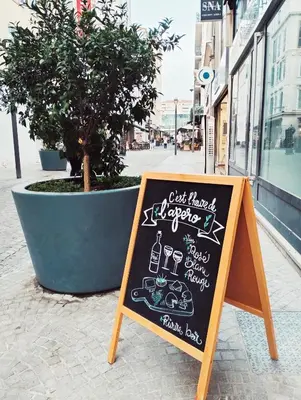 SNA
C'est l'heure de
l'apéro
Vins
Rosé
Blanc
Rouge